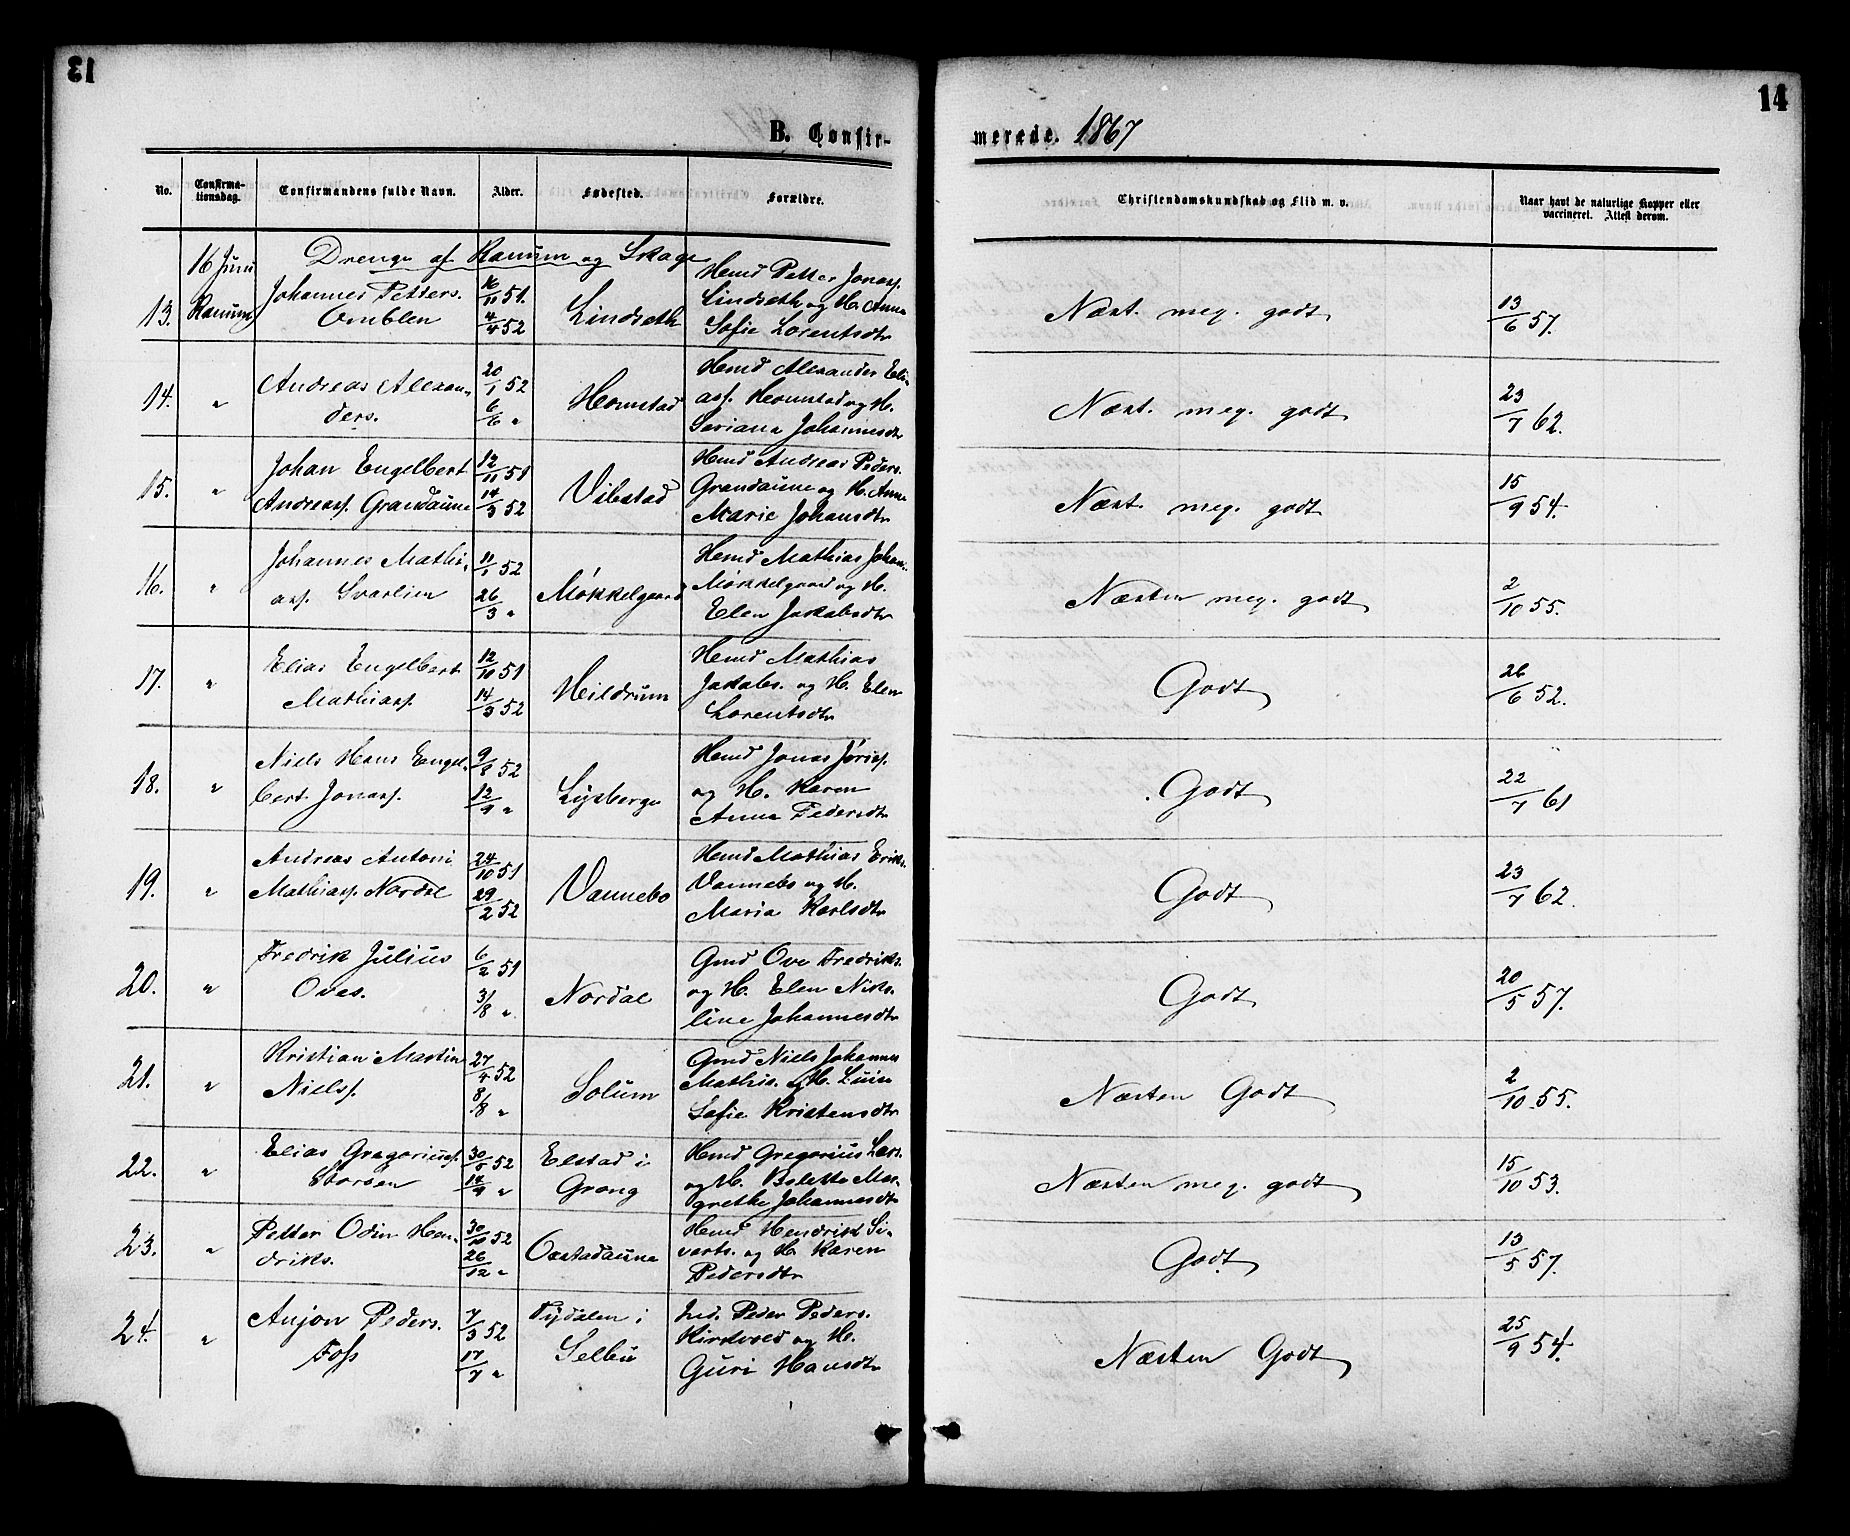 13
14
B. Confirmerede. 1867
No.
Confirmationsdag.
Confirmandens fulde Navn.
Alder.
Fødested.
Forældre.
Christendomskundskab og Flid m. v.
Naar havt de naturlige Kopper eller
vaccineret. Attest derom.
16 Juni
Ranum
Drenge af Ranum og Skage
13.
Johannes Petters.
Omblen
16/11 51.
4/4 52
Lindseth
Hmd Petter Jonass.
Lindseth og H. Anna
Sofie Lorentsdtr
Næst. meg. godt
13/6 57.
14. "
Andreas Alexan-
ders.
20/1 52
6/6 "
Homstad
Hmd Alexander Eli-
ass. Homstad og H.
Seriana Johannesdtr
Næst. meg. godt
23/7 62.
15. "
Johan Engelbert
Andreass. Grandaune
12/11 51
14/3 52
Vibstad
Hmd Andreas Peders.
Grandaune og H. Anne
Marie Johansdtr
Næst. meg. godt
15/9 54.
16. "
Johannes Mathi-
ass. Svarlien
11/1 52
26/3 "
Møkkelgaard
Hmd Mathias Johan-
Møkkelgaard og H.
Elen Jakobsdtr
Næsten meg. godt
2/10 55.
17. "
Elias Engelbert
Mathiass.
12/10 51
14/3 52
Heildrum
Hmd Mathias
Jakobs. og H. Elen
Lorentsdtr
Godt
26/6 52.
18. "
Niels Hans Engel-
bert Jonass.
9/8 52
12/9 "
Lysberg
Hmd Jonas
og H. Karen
Anna Pedersdtr
Godt
22/7 61
19. "
Andreas Antoni
Mathiass. Nordal
24/10 51
29/2 52
Vannebo
Hmd Mathias Eriks.
Vannebo og H.
Maria Karlsdtr
Godt
23/7 62.
20. "
Fredrik Julius
Oves.
6/2 51
3/8 "
Nordal
Gmd Ove Fredriks.
og H. Elen Niko-
line Johannesdtr
Godt
20/5 57.
21. "
Kristian Martin
Nielss.
27/4 52
8/8 "
Solum
Gmd Niels Johannes
Mathis. & H.
Sofie Kristensdtr
Næsten Godt
2/10 55.
22. "
Elias Gregoriuss.
30/5 52
14/9 "
Elstad i
Grong
Hmd Gregorius Lars.
og H. Beletta Mar-
grethe Johannesdtr
Næsten meg. godt
15/10 53.
23. "
Petter Odin Hen-
driks.
30/10 52
26/12 "
Oxstadaune
Hmd Hendrik Si-
verts. og H. Karen
Pedersdtr
Godt
13/5 57.
24. "
Anjon Peders.
Foss
7/3 52
17/7 "
Tydalen i
Selbu
Ind. Peder Peders.
Kirkvold og H.
Guri Hansdtr
Næsten Godt
25/9 54.